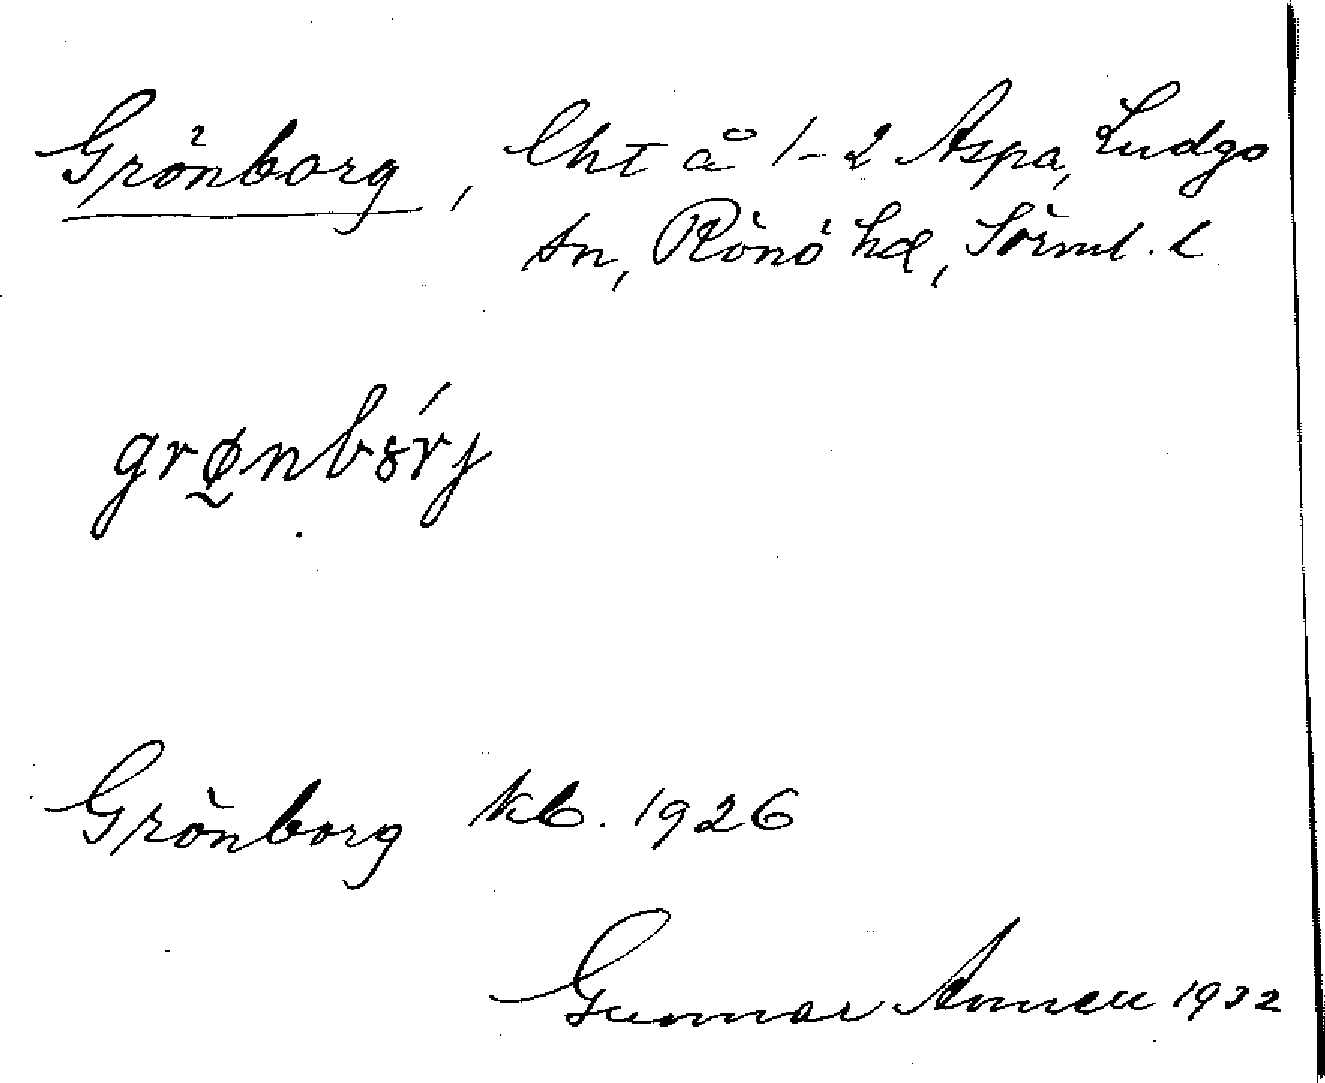 Grönborg, lht å 1-2 Aspa, Ludgo
sn, Rönö hd, Sörml. l
grø̰nbȣ́rj
Grönborg kb. 1926
Gunnar 1932